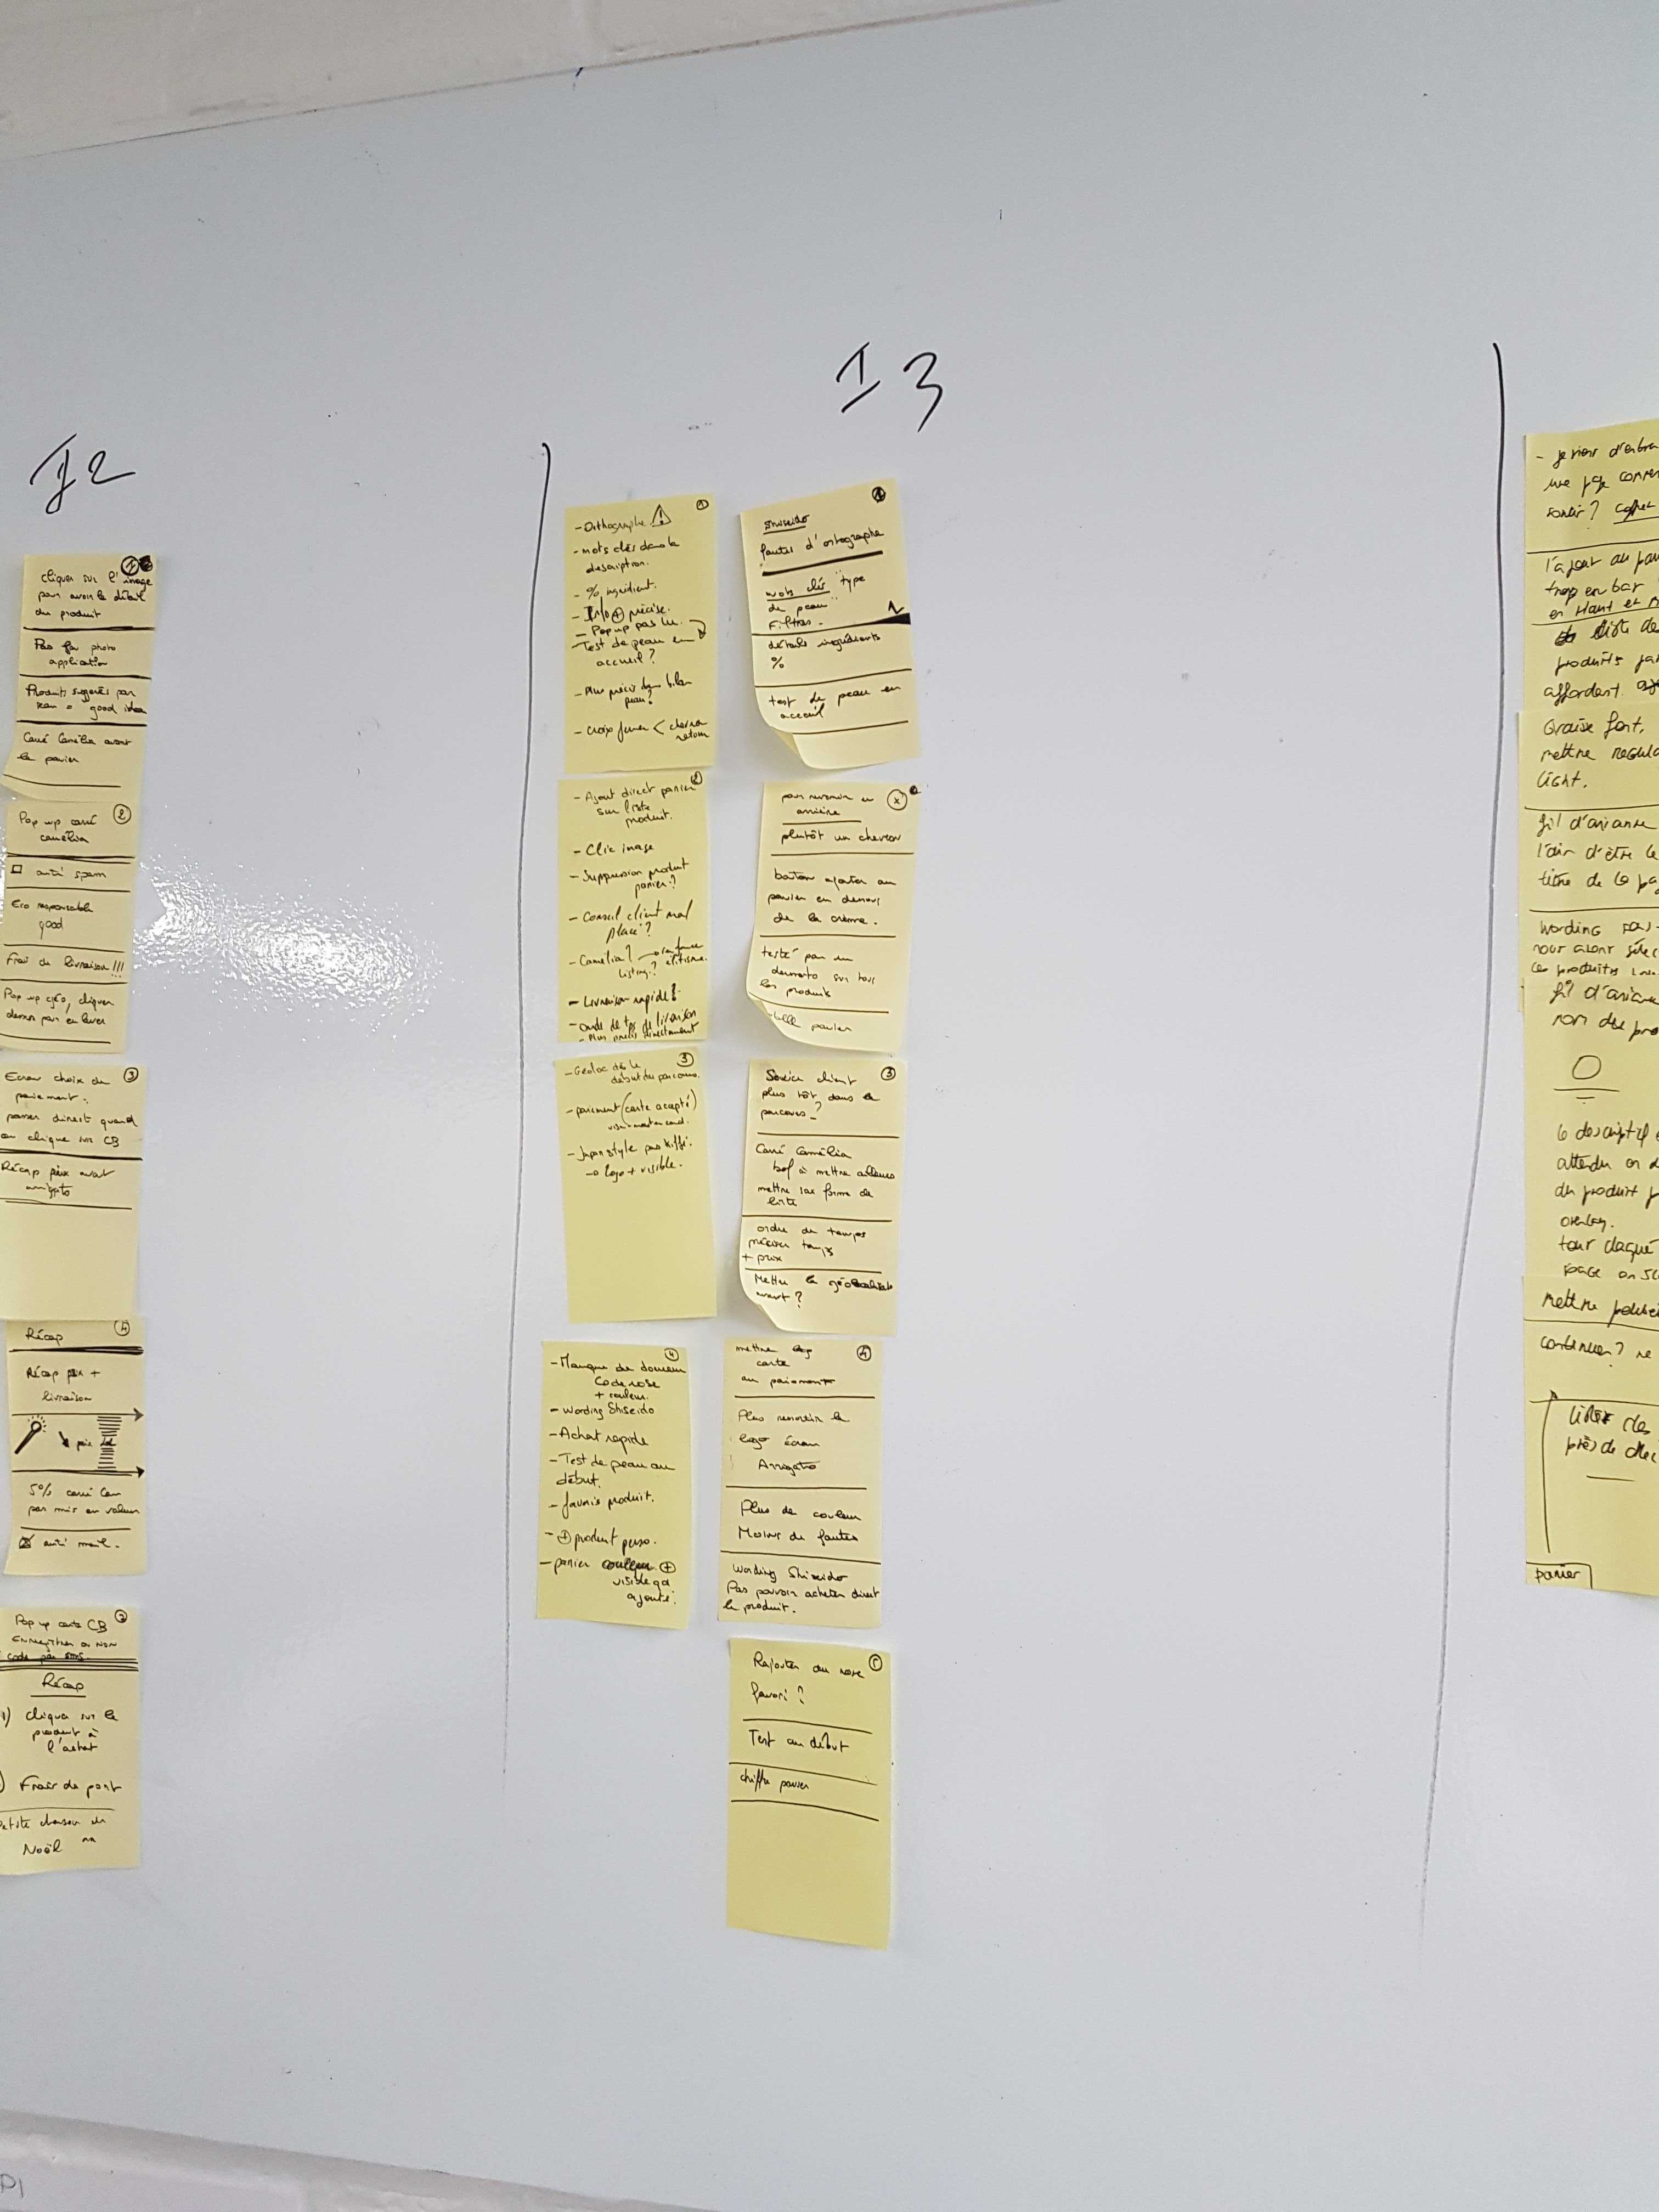 I2
cliquer sur l'image
pour avoir le détail
du produit
Pas fan photo
application
Produits suggérés par
good idea
Carré Camélia avant
le panier
2
Pop up carré
camélia
anti spam
Eco responsable
good
Frai de livraison !!!
Pop up géo, cliquer
dessus pour enlever
3
Ecran choix du
paiement :
passer direct quand
on clique sur CB
Récap prix avant
arrigato
4
Récap
Récap prix +
livraison
5% carré Cam
pas mis en valeur
anti mail.
Pop up carte CB
Enregistrer ou non
code par SMS
Récap
1) cliquer sur le
produit à
l'achat
) Frais de port
petite chanson de
Noël
I3
1
- Orthographe
- mots clés dans la
description.
- % ingrédient.
- Info + précise.
- Pop up pas lu.
- Test de peau en
accueil ?
- Plus précis dans bilan
peau ?
- croix fermer < chevron
retour
2
- Ajout direct panier
sur liste
produit.
- Clic image
- Suppression produit
panier ?
- Conseil client mal
placé ?
- Camélia ?
listing ? élitisme.
- Livraison rapide ?
- Ordre de tps de livraison
- Plus précis directement
3
- Géoloc dès le
début du parcours.
- paiement (carte accepté)
- Japan style pas kiffé.
→ logo + visible.
4
- Manque de douceur
Code rose
+ couleur.
- Wording Shiseido
- Achat rapide
- Test de peau au
début.
- favoris produit.
- + produit perso.
- panier couleur +
visible qd
ajouté.
1
Shiseido
fautes d'ortographe
mots clés "type
de peau"
Filtres -
détails ingrédients
%
test de peau en
acceuil
x
pour revenir en
arrière
plutôt un chevron
bouton ajouter au
panier en dessous
de la crème.
testé par un
dermato sur tous
les produits
panier
3
Service client
plus tôt dans le
parcours ?
Carré Camélia
bof à mettre ailleurs
mettre sous forme de
liste
ordre de temps
préciser temps
+ prix
Mettre la géolocalisation
avant ?
4
mettre
carte
au paiement
Plus ressortir le
logo écran
Arrigato
Plus de couleur
Moins de fautes
Wording Shiseido
Pas pouvoir acheter direct
le produit.
5
Rajouter du rose
favori ?
Test au début
chiffre panier
- je viens d'entrer
une page
sortir ?
l'ajout au pan
trop en bas
en Haut et
liste de
produits
affordant.
Graisse font,
mettre regula
light.
fil d'ariane
l'air d'être le
titre de la pa
Wording
nous avons
les produits
fil d'ariane
nom du pro
le descriptif
attendu on
du produit
overlay.
page on
mettre
continuer ? ne
près de
panier